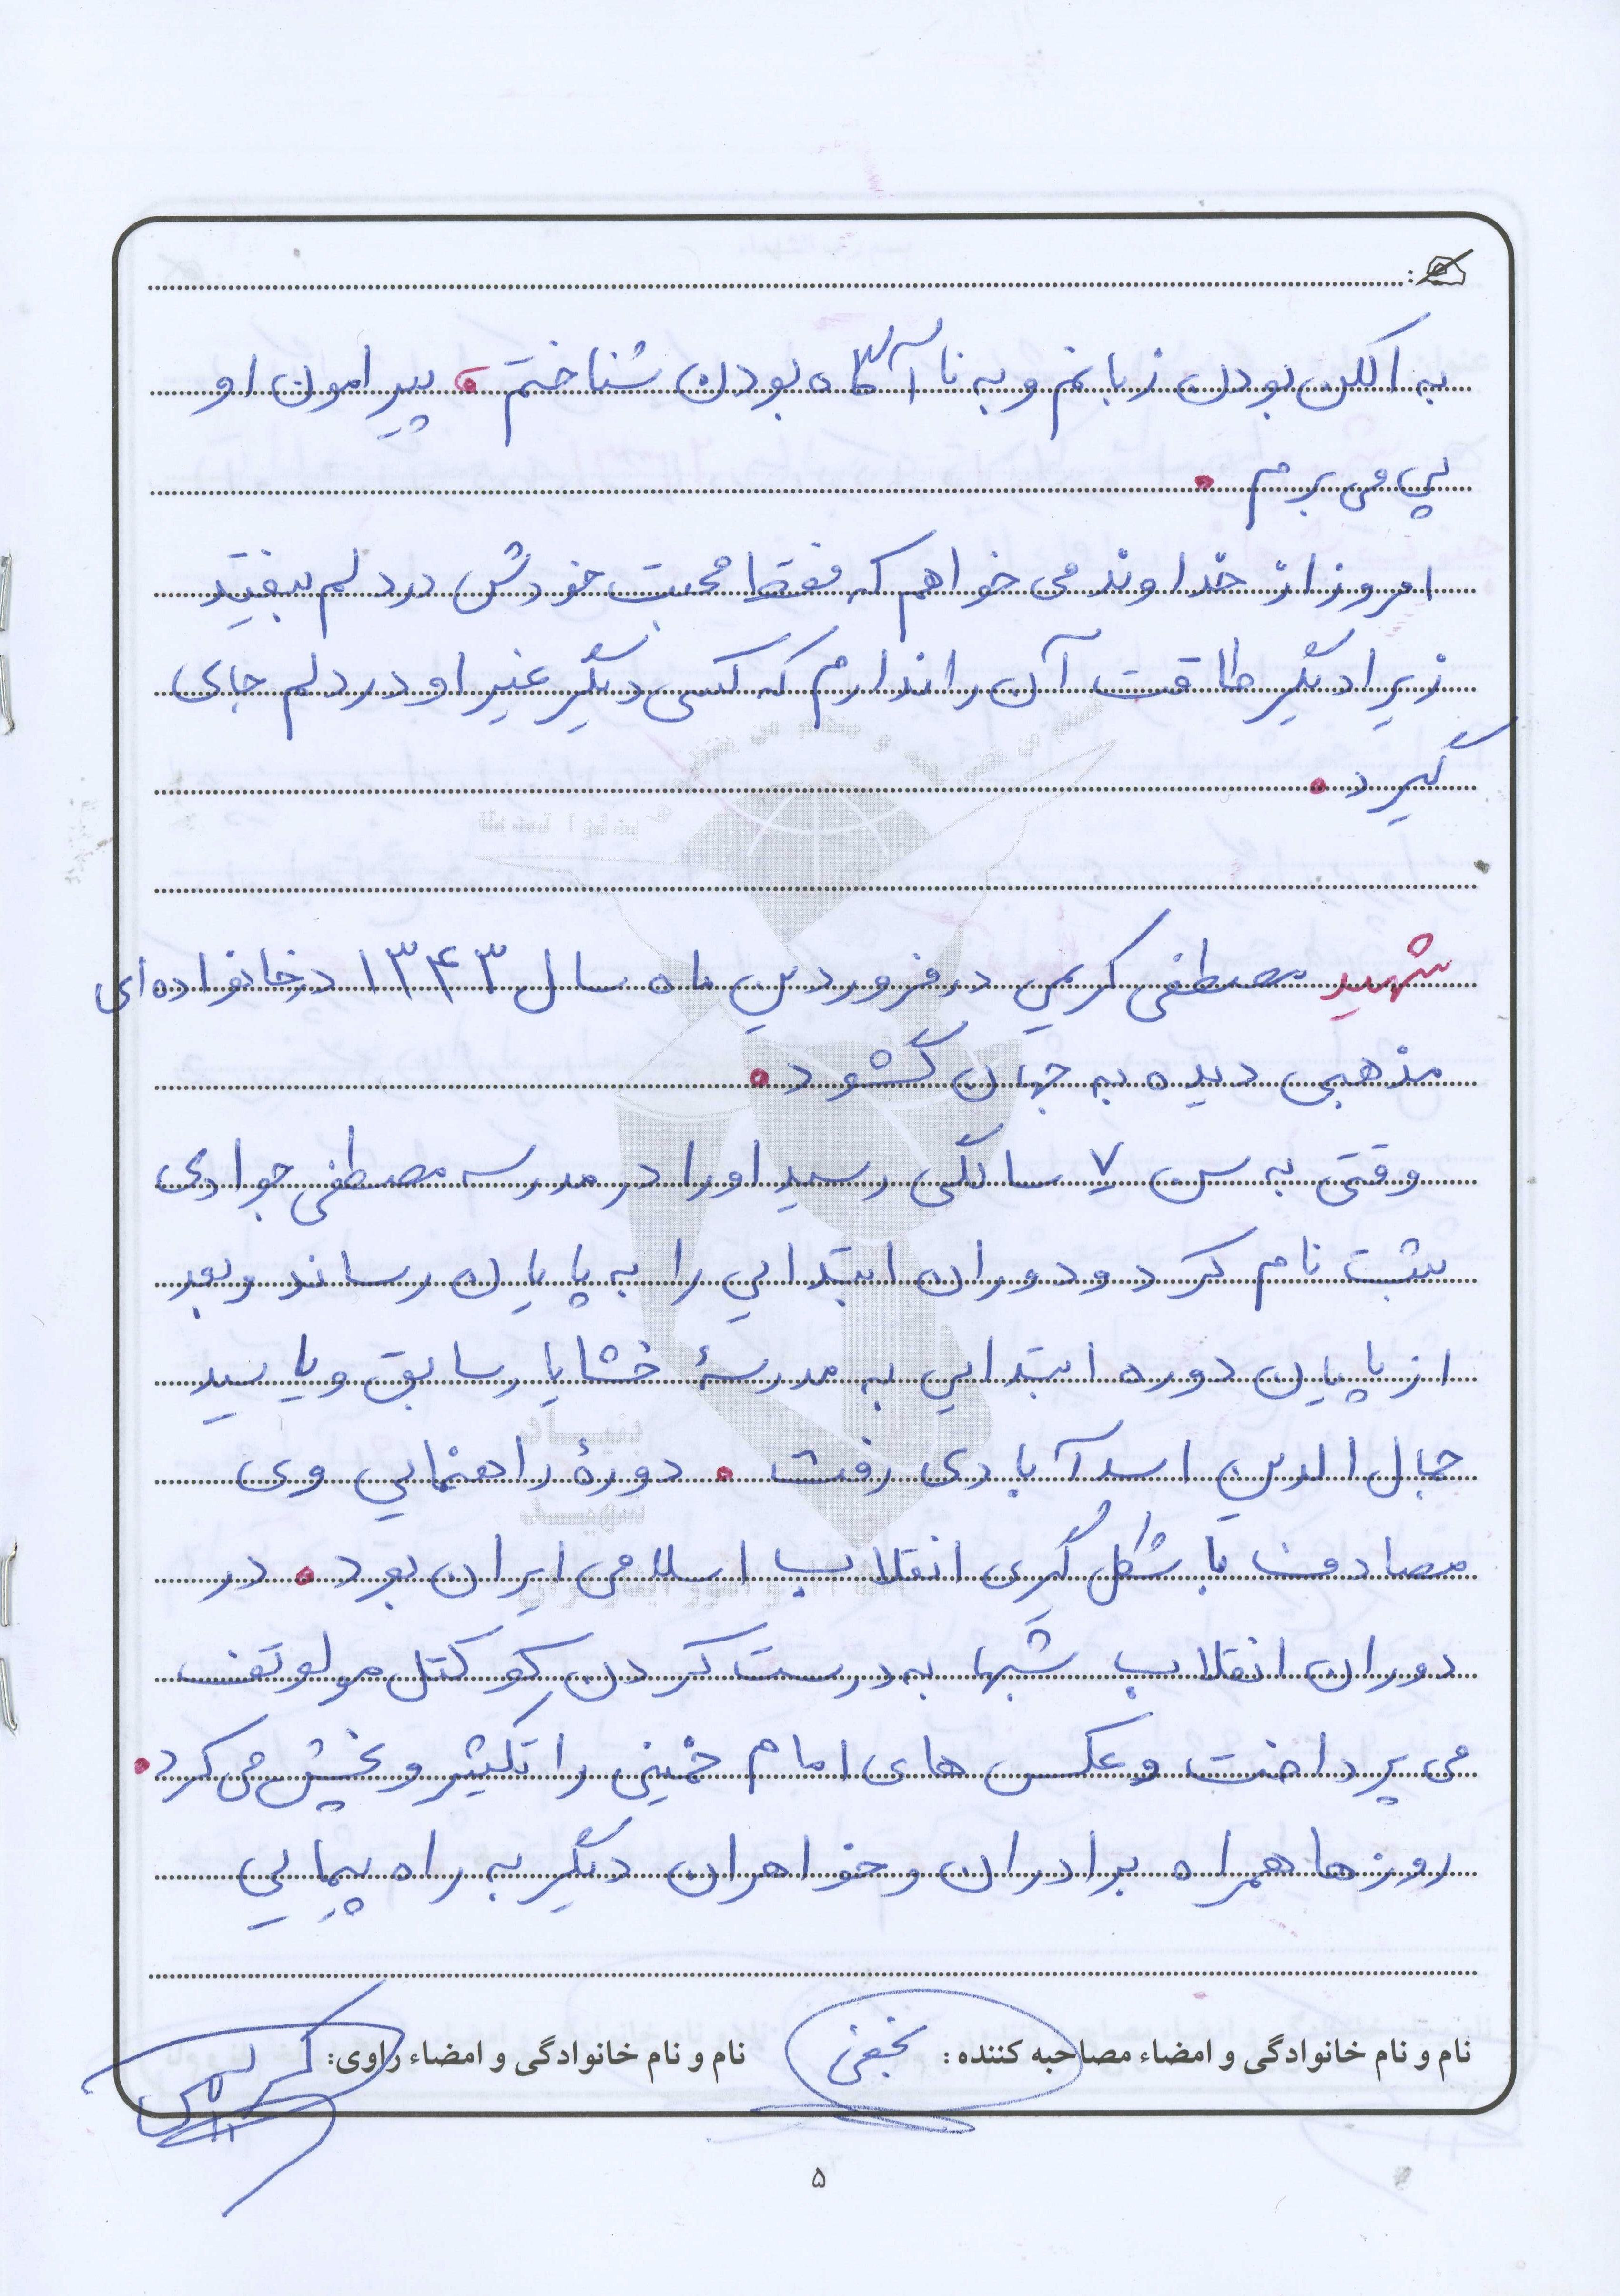 به الکن بودن زبانم و به نا آگاه بودن شناختم، پیرامون او
پی می برم.
امروز از خداوند می خواهم که فقط محبت خودش در دلم بیفتد
زیرا دیگر طاقت آن را ندارم که کسی دیگر غیر او در دلم جای
گیرد.
شهید مصطفی کریمی در فروردین ماه سال ۱۳۴۳ در خانواده ای
مذهبی دیده به جهان گشود.
وقتی به سن ۷ سالگی رسید او را در مدرسه مصطفی جوادی
ثبت نام کرد و دوران ابتدایی را به پایان رساند و بعد
از پایان دوره ابتدایی به مدرسهٔ خشایار سابق و یا سید
جمال الدین اسدآبادی رفت. دورهٔ راهنمایی وی
مصادف با شکل گیری انقلاب اسلامی ایران بود. در
دوران انقلاب شبها به درست کردن کوکتل مولوتف
می پرداخت و عکس های امام خمینی را تکثیر و پخش می کرد.
روزها همراه برادران و خواهران دیگر به راه پیمایی
نام و نام خانوادگی و امضاء مصاحبه کننده : نجفی
نام و نام خانوادگی و امضاء راوی:
۵